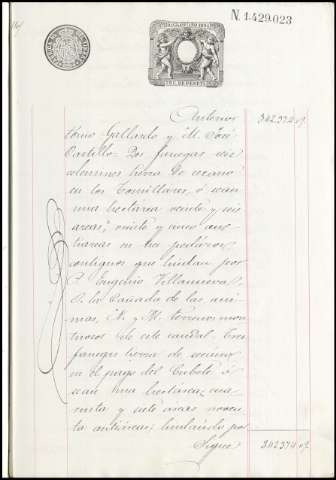 N. 1.429.023
Anterior 342.374 19
tonio Gallardo y M. José
Castillo. Dos fanegas seis
celemines tierra de secano
en los Tomillares, ó sean
una hectárea veinte y seis
areas, veinte y cinco cen-
tiareas en tres pedazos
contiguos que lindan por
P. Eugenio Villanueva,
S. la Cañada de las áni-
mas, N. y M. terrenos mon-
tuosos de este caudal. Tres
fanegas tierra de secano
en el pago del Cubete ó
sean una hectárea, cua-
renta y siete areas noven-
ta centiareas, lindando por
Sigue 342.374 19